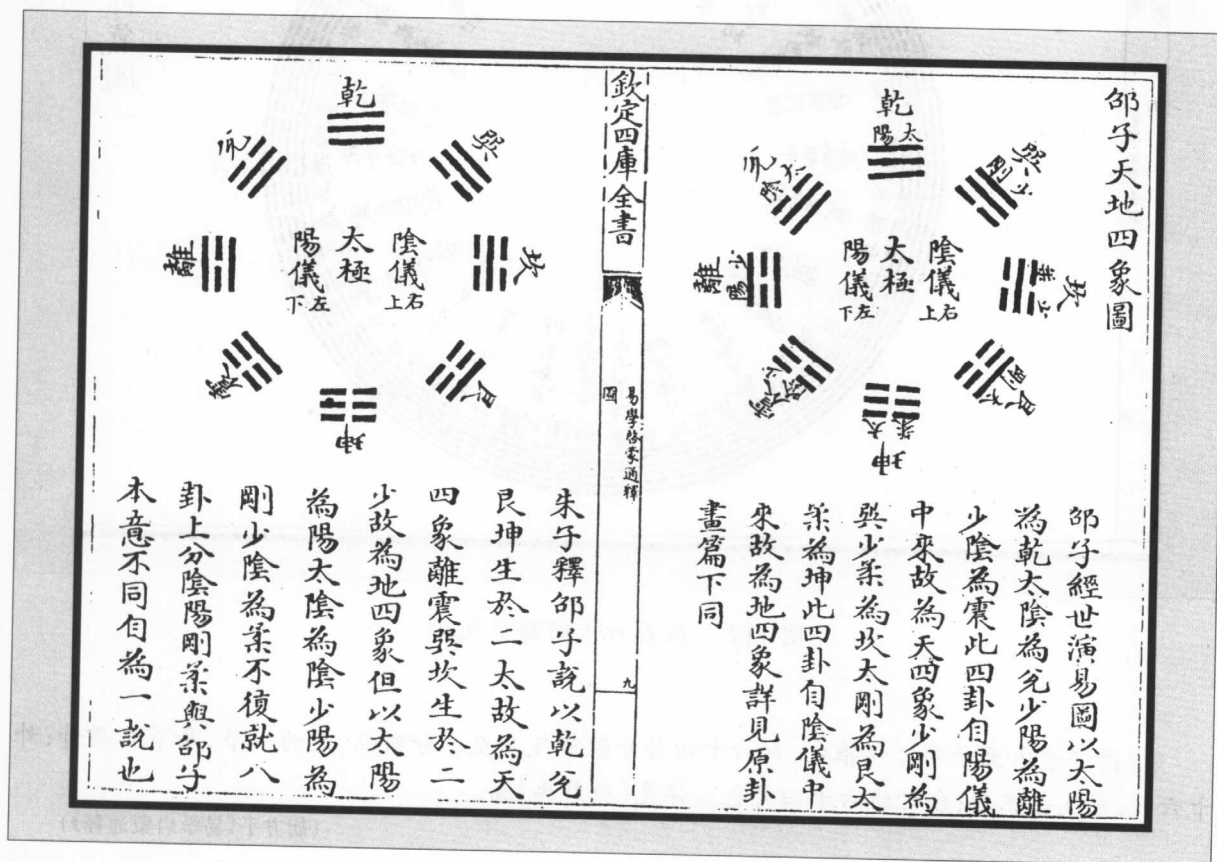 邵子天地四象圖
乾
太陽
巽
少剛
兌
太陰
坎
少柔
離
少陽
陰儀右上
太極
陽儀左下
艮
太剛
震
少陰
太柔
坤
邵子經世演易圖以太陽
為乾太陰為兌少陽為離
少陰為震此四卦自陽儀
中來故為天四象少剛為
巽少柔為坎太剛為艮太
柔為坤此四卦自陰儀中
來故為地四象詳見原卦
畫篇下同
欽定四庫全書
易學啓蒙通釋
圖
九
乾
巽
兌
坎
離
陰儀右上
太極
陽儀左下
艮
震
坤
朱子釋邵子說以乾兌
艮坤生於二太故為天
四象離震巽坎生於二
少故為地四象但以太陽
為陽太陰為陰少陽為
剛少陰為柔不復就八
卦上分陰陽剛柔與邵子
本意不同自為一說也